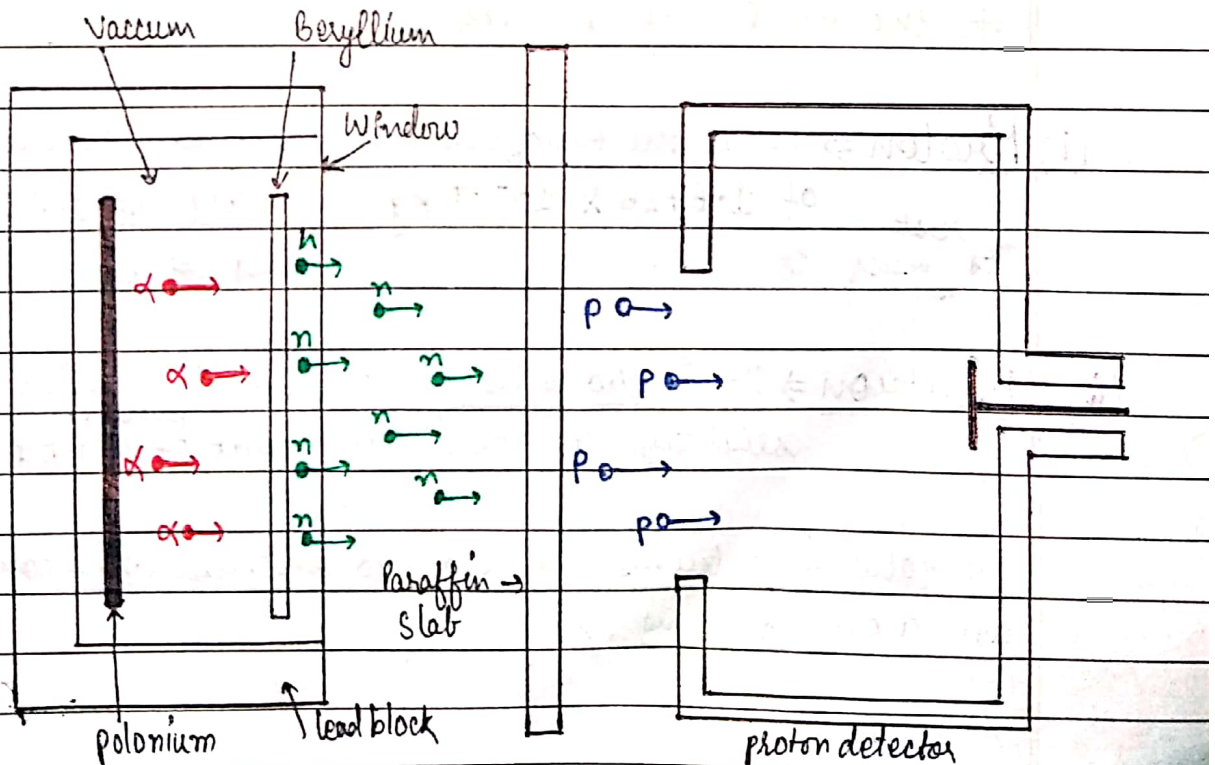 Vaccum
Beryllium
Window
α
α
α
α
n
n
n
n
n
n
n
n
p
p
p
p
Paraffin →
Slab
polonium
lead block
proton detector